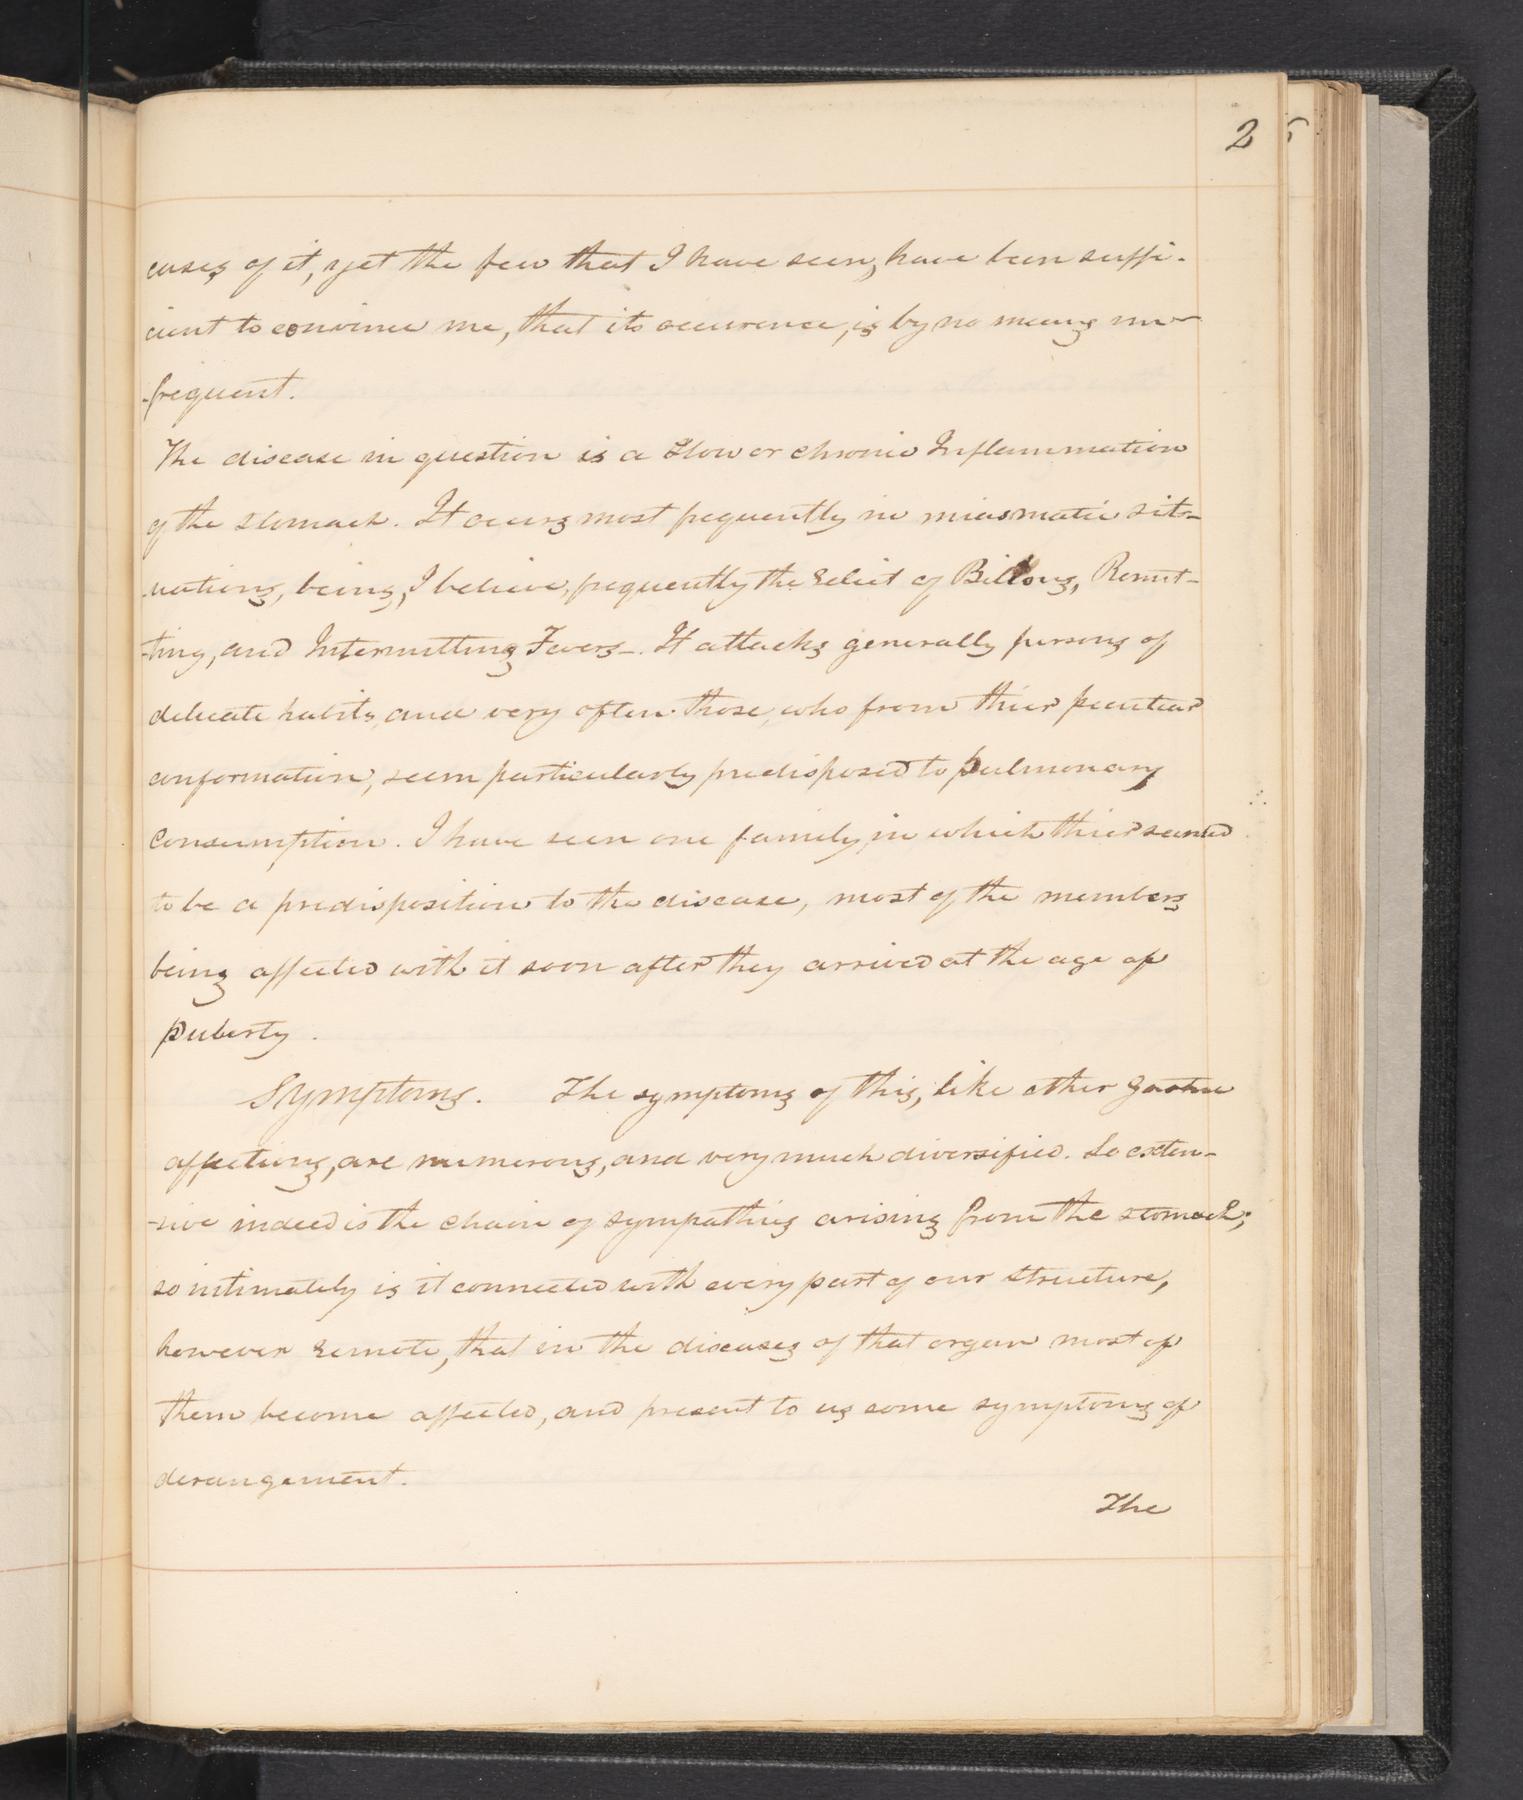 2
cases of it, yet the few that I have seen, have been suffi-
cient to convince me, that its occurrence, is by no means un-
-frequent.
The disease in question is a slow or chronic Inflammation
of the stomach. It occurs most frequently in miasmatic sit-
-uations, being, I believe, frequently the relict of Billous, Remit-
-ting, and Intermitting Fevers-. It attacks generally persons of
delicate habits, and very often those, who from thier peculiar
conformation, seem particularly predisposed to pulmonary
consumption. I have seen one family, in which thier seemed
to be a predisposition to the disease, most of the members
being affected with it soon after they arrived at the age of
puberty.
Symptoms. The symptoms of this, like other gastric
affections, are numerous, and very much diversified. So exten-
-sive indeed is the chain of sympathies arising from the stomach;
so intimately is it connected with every part of our structure,
however remote, that in the diseases of that organ most of
them become affected, and present to us some symptoms of
derangement.
The